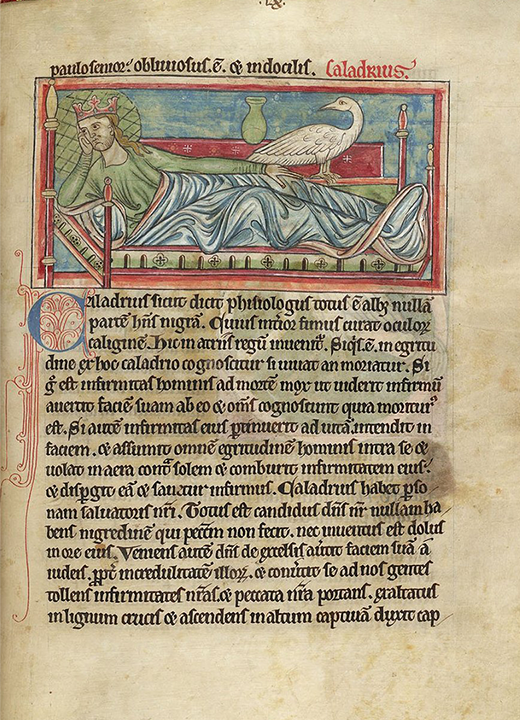 paulo senior: oblivviosus. ē. ⁊ indocilis. Caladrius.
Caladrius sicut dicit phisiologus totus ē alb⁹ nullā
partē hn̄s nigrā. Cuius int̄ior fimus curat oculor̄
caliginē. Hic in atriis regū inuenit̄. Siq̄s. ē. in egritu
dine ex hoc caladrio cognoscitur si uiuat an moriatur. Si
g̊ est infirmitas hominis ad mortē mox ut uiderit infirmū
auertit faciē suam ab eo ⁊ om̄s cognoscunt quia moritur⁹
est. Si autē infirmitas eius ꝑtinuerit ad uitā. intendit in
faciem. ⁊ assumit omnē egritudinē hominis intra se ⁊
uolat in aera cont̄ solem ⁊ comburit infirmitatem eius.
⁊ disꝑgit eā ⁊ sanatur infirmus. Caladrius habet ꝑso
nam saluatoris nr̄i. Totus est candidus dn̄s nr̄ nullam ha
bens nigredinē qui peccm̄ non fecit. nec inuentus est dolus
in ore eius. Veniens autē dn̄s de excelsis auertit faciē suā a
iudeis. ꝓpt̄ incredulitatē illor̄. ⁊ conuertit se ad nos gentes
tollens infirmitates nr̄as. ⁊ peccata nr̄a portans. exaltatus
in lignum crucis ⁊ ascendens in altum captiuā duxit cap